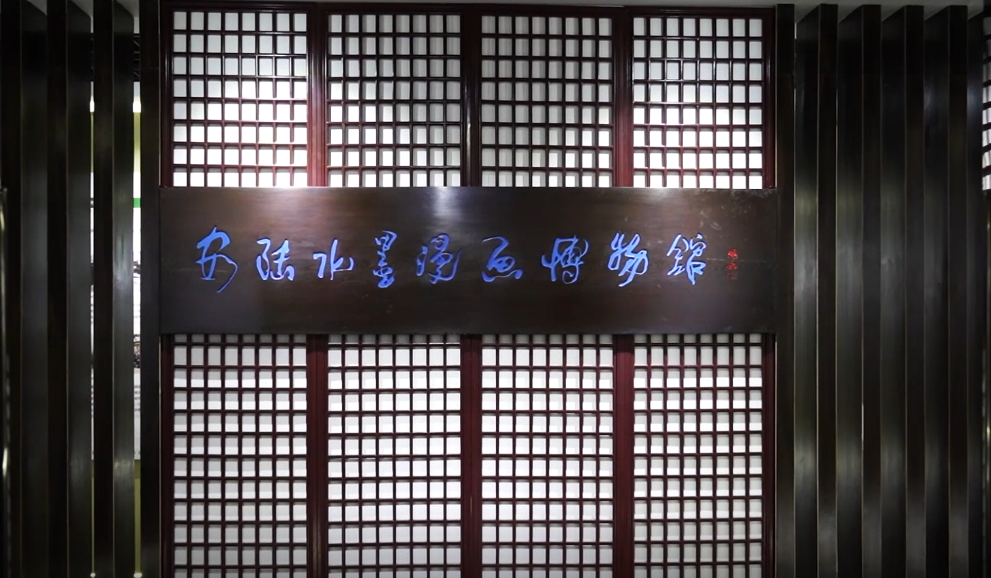 安陆水墨漫画博物馆